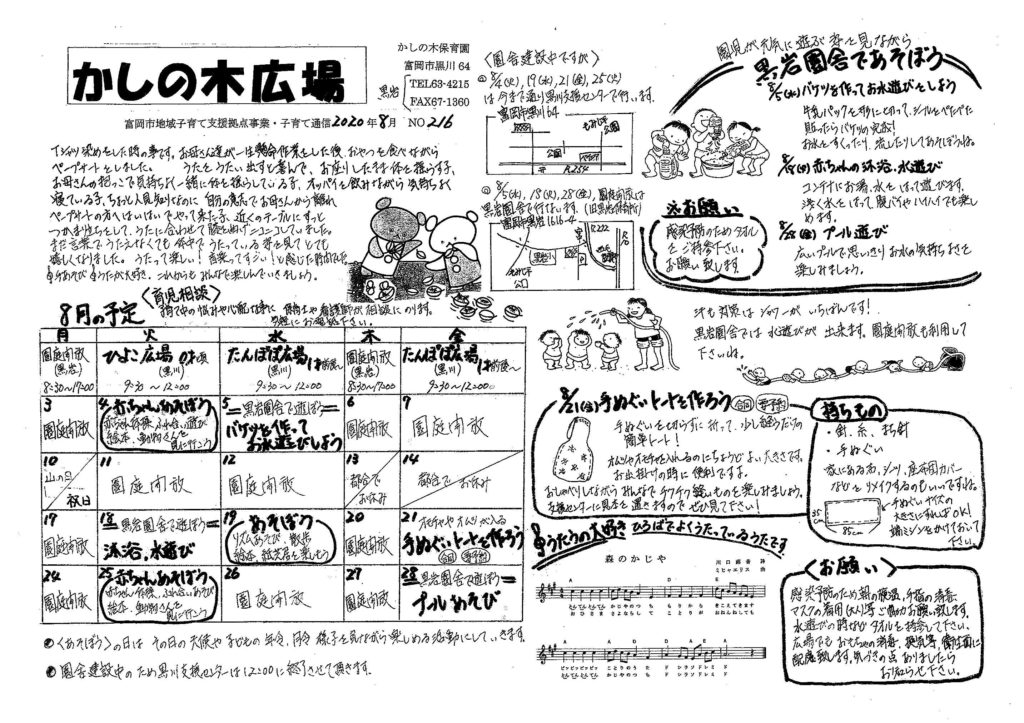 かしの木広場
かしの木保育園
富岡市黒川64
黒岩
TEL63-4215
FAX67-1360
富岡市地域子育て支援拠点事業・子育て通信 2020年8月 NO.216
Tシャツ染めをした時の事です。お母さん達が一生懸命作業をした後、おやつを食べながら
お母さんの抱っこで気持ちよく一緒に体を揺らしている子、オッパイを飲みながら気持ちよく
つかまり立ちをして、うたに合わせて膝をまげニコニコしていました。
まだ言葉でうたえなくても体中でうたっている姿を見てとても
嬉しくなりました。うたって楽しい!音楽ってすごい!と感じた時間でした。
〈園舎建設中ですが〉
① 8/4(火)、19(水)、21(金)、25(火)
は今まで通り黒川支援センターで行います。
富岡市黒川64
もみじ平
公園
公園
R.254
② 8/5(水)、18(火)、28(金)、園庭開放は
黒岩園舎で行ないます。
富岡市黒岩1616-4
もみじ平
公園
黒岩小
R.222
園児が元気に遊ぶ姿を見ながら
黒岩園舎であそぼう
8/5(水)バケツを作ってお水遊びをしよう
牛乳パックを半分に切って、シールをペタペタ
貼ったらバケツの完成!
お水をすくったり、流したりしてあそぼうね。
8/18(火)赤ちゃんの沐浴、水遊び
コンテナにお湯、水をはって遊びます。
浅く水をはって腹バイやハイハイでも楽し
めます。
8/28(金)プール遊び
広いプールで思いっきりお水の気持ちよさを
楽しみましょう。
※お願い
感染予防のためタオル
をご持参下さい。
お願い致します。
汗も対策はシャワーがいちばんです!
黒岩園舎では水遊びが出来ます。園庭開放も利用して
下さいね。
8月の予定
〈育児相談〉
子育て中の悩みや心配な事に保育士や看護師が相談にのります。
気軽にお電話下さい。
月 火 水 木 金
園庭開放
(黒岩)
8:30~17:00
ひよこ広場 0才頃
(黒川)
9:30~12:00
たんぽぽ広場 1才前後~
(黒川)
9:30~12:00
園庭開放
(黒岩)
8:30~17:00
たんぽぽ広場 1才前後~
(黒川)
9:30~12:00
3
園庭開放
4 赤ちゃんあそぼう
赤ちゃん体操、ふれ合い遊び
絵本、動物さんを
見に行こう
5 =黒岩園舎で遊ぼう=
バケツを作って
お水遊びしよう
6
園庭開放
7
園庭開放
10
山の日
祝日
11
園庭開放
12
園庭開放
13
都合で
お休み
14
都合でお休み
17
園庭開放
18 =黒岩園舎で遊ぼう=
沐浴、水遊び
19 あそぼう
リズムあそび、散歩
絵本、紙芝居を楽しもう
20
園庭開放
21 オモチャやオムツが入る
手ぬぐいトートを作ろう
合同 要予約
24
園庭開放
25 赤ちゃんあそぼう
赤ちゃん体操、ふれ合い遊び
絵本、動物さんを
見に行こう
26
園庭開放
27
園庭開放
28 =黒岩園舎で遊ぼう=
プールあそび
●〈あそぼう〉の日はその日の天候や子どもの年令、月令、様子を見ながら楽しめる活動にしていきます。
●園舎建設中のため黒川支援センターは12:00に終了させて頂きます。
8/21(金)手ぬぐいトートを作ろう 合同 要予約
手ぬぐいをたてよこに折って、少し縫うだけの
簡単トート!
オムツやオモチャを入れるのにちょうどよい大きさです。
お出掛けの時に便利ですよ。
おしゃべりしながらみんなでチクチク縫いものを楽しみましょう。
支援センターに見本を置きますのでぜひ見て下さい!
持ちもの
・針、糸、まち針
・手ぬぐい
家にある布、シーツ、座布団カバー
などをリメイクするのもいいですね。
35cm
85cm
手ぬぐいサイズの
大きさにすればOK!
端ミシンをかけておいて
下さい。
うたうの大好き ひろばでよくうたっているうたです
森のかじや
川口麻香 詩
ミヒャエリス 曲
〈お願い〉
感染予防のため朝の検温、手指の消毒、
マスクの着用(大人)等ご協力お願い致します。
水遊びの時などタオルを持参して下さい。
広場でもおもちゃの消毒、換気等、衛生面に
配慮致します。気づきの点ありましたら
お知らせ下さい。